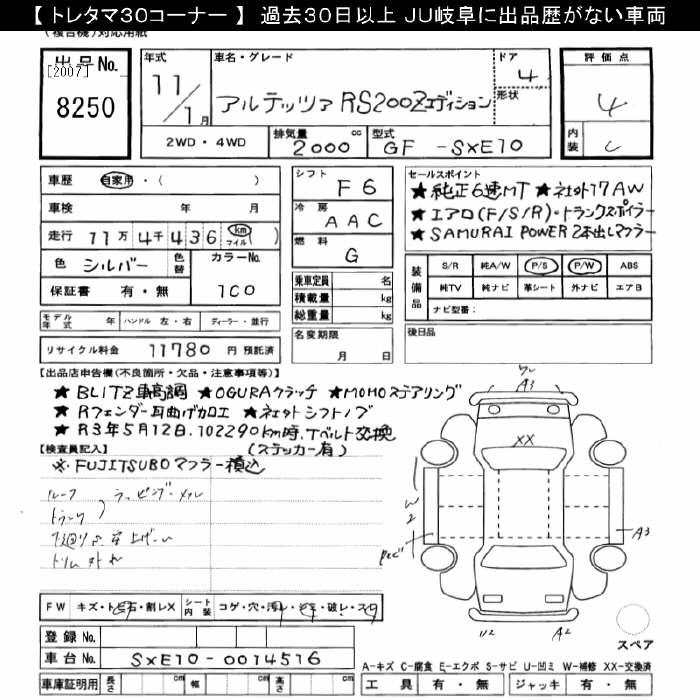 【 トレタマ30コーナー 】 過去30日以上 JU岐阜に出品歴がない車両
(複合機)対応用紙
出品No.
[2007]
8250
年式
11/1月
車名・グレード
アルテッツァ RS200Zエディション
ドア
4
形状
2WD・4WD
排気量
2000 cc
型式
GF -SXE10
評価点
4
内装
C
車歴 自家用・( )
車検 年 月
走行 11万4千436 km マイル ( )
色 シルバー 色替 カラーNo.
保証書 有・無 1C0
モデル年式 年 ハンドル 左・右 ディーラー・並行
リサイクル料金 11780 円 預託済
シフト
F6
冷房
AAC
燃料
G
乗車定員 名
積載量 kg
総重量 kg
名変期限
月 日
セールスポイント
★純正6速MT ★社外17AW
★エアロ(F/S/R)・トランクスポイラー
★SAMURAI POWER 2本出しマフラー
装備品
S/R 純A/W P/S P/W ABS
純TV 純ナビ 革シート 外ナビ エアB
ナビ型番:
後日品
【出品店申告欄(不良箇所・欠品・注意事項等)】
★BLITZ車高調 ★OGURAクラッチ ★MOMOステアリング
★Rフェンダー耳曲げ加工 ★社外シフトノブ
★R3年5月12日、102290km時、Tベルト交換
(ステッカー有)
【検査員記入】
※FUJITSUBOマフラー積込
ルーフ
トランク
ラッピング
トリム
A3
XX
W2
A3
U2
A2
スペア
FW キズ・ト石・割レX シート内装 コゲ・穴・汚レ・破レ・スレ
登録No.
車台No. SXE10-0014516
車庫証明用 長さ cm 幅 cm 高さ cm
A-キズ C-腐食 E-エクボ S-サビ U-凹ミ W-補修 XX-交換済
工具 有・無 ジャッキ 有・無